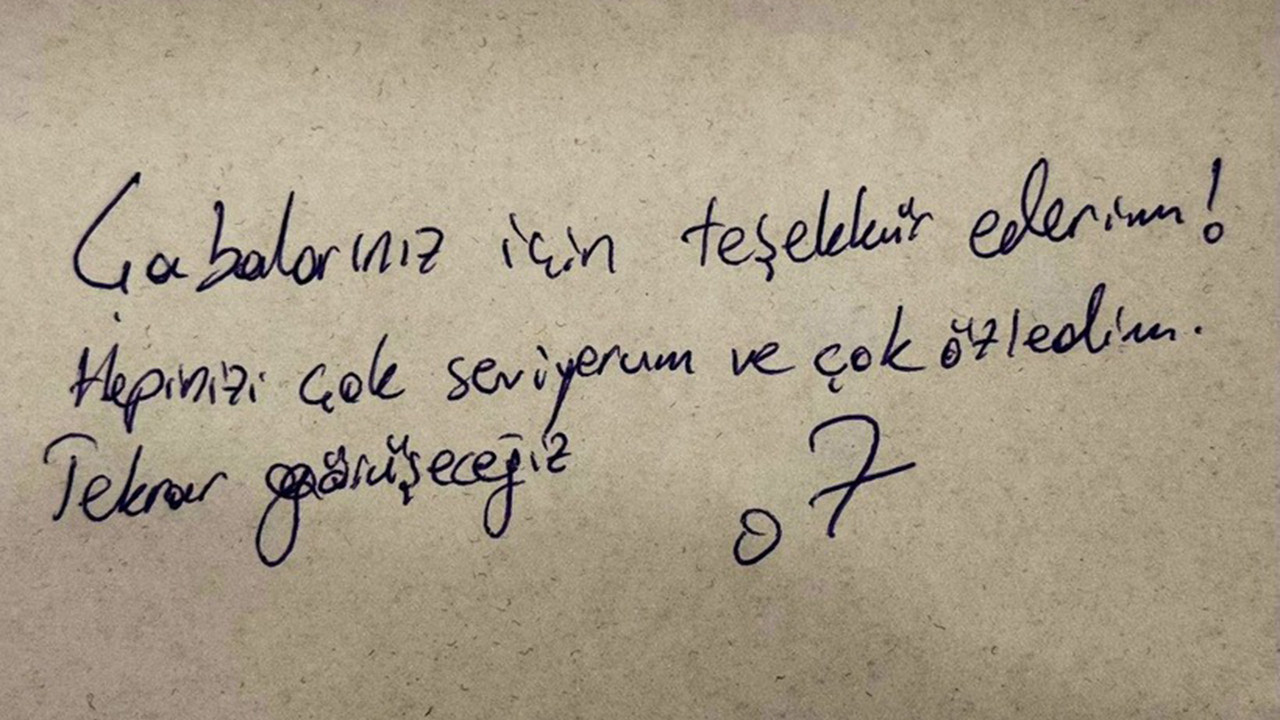 Çabalarınız için teşekkür ederim!
Hepinizi çok seviyorum ve çok özledim.
Tekrar görüşeceğiz
o7